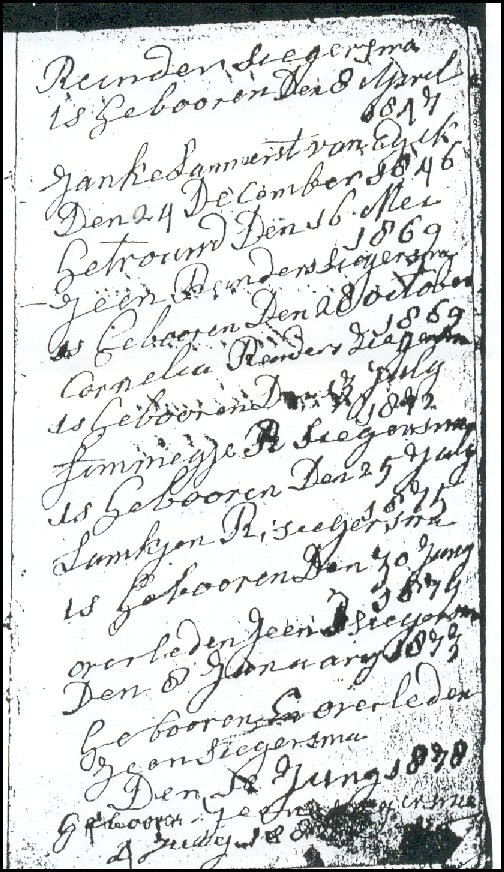 Reinder Siegersma
is Gebooren Den 8 April
1847
Janke Lammerst van Eyck
Den 24 December 1846
Getrouwd Den 16 Mei
1869
Jeen Reinders Siegersma
is Gebooren Den 28 october
1869
Cornelia Reinders Siegersma
is Gebooren Den 13 July
1872
R Siegersma
is Gebooren Den 25 July
1875
Lamkjen R. Siegersma
is Gebooren Den 30 Juny
1879
overleden Jeen Siegersma
Den 8 January 1873
Gebooren En overleden
Jeen Siegersma
Den Juny 1878
Gebooren Jeen
4 July